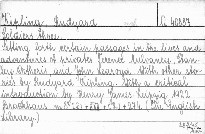 Kipling, Rudyard C 40587
Soldiers Three.
Setting forth certain passages in the lives and
adventures of privates Terence Mulvaney, Stan-
ley Ortheris, and John Learoyd. With other sto-
ries by Rudyard Kipling. With a critical
introduction by Henry James. Leipzig
Brockhaus (The English
Library.)